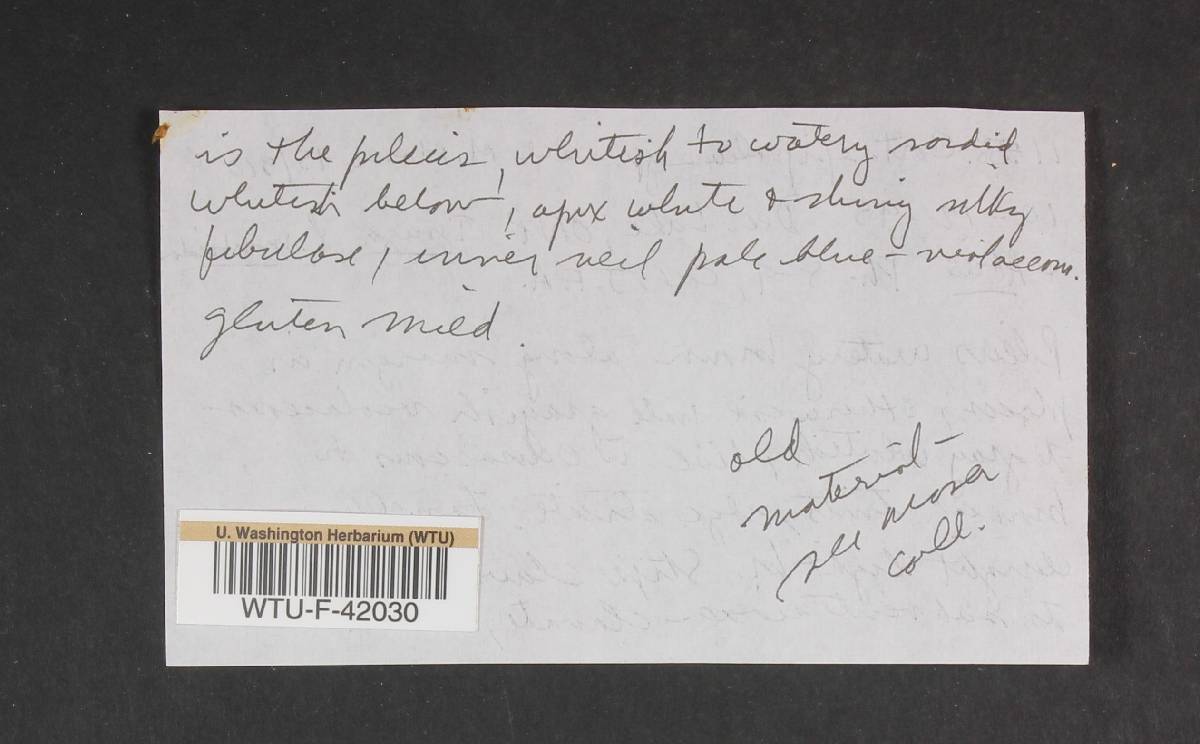 is the pileus, whitish to watery sordid
whitish below, apex white & shiny silky
fibrillose, inner veil pale blue-violaceous.
gluten mild.
old
material -
see moser
coll.
U. Washington Herbarium (WTU)
WTU-F-42030